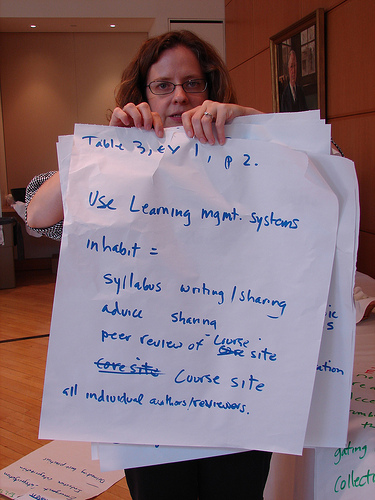 Table 3, ex 1, p 2.
Use Learning mgmt. systems
inhabit =
syllabus writing/sharing
advice sharing
peer review of course site
core site course site
all individual authors/reviewers.
ic
s
ation
gating
collect